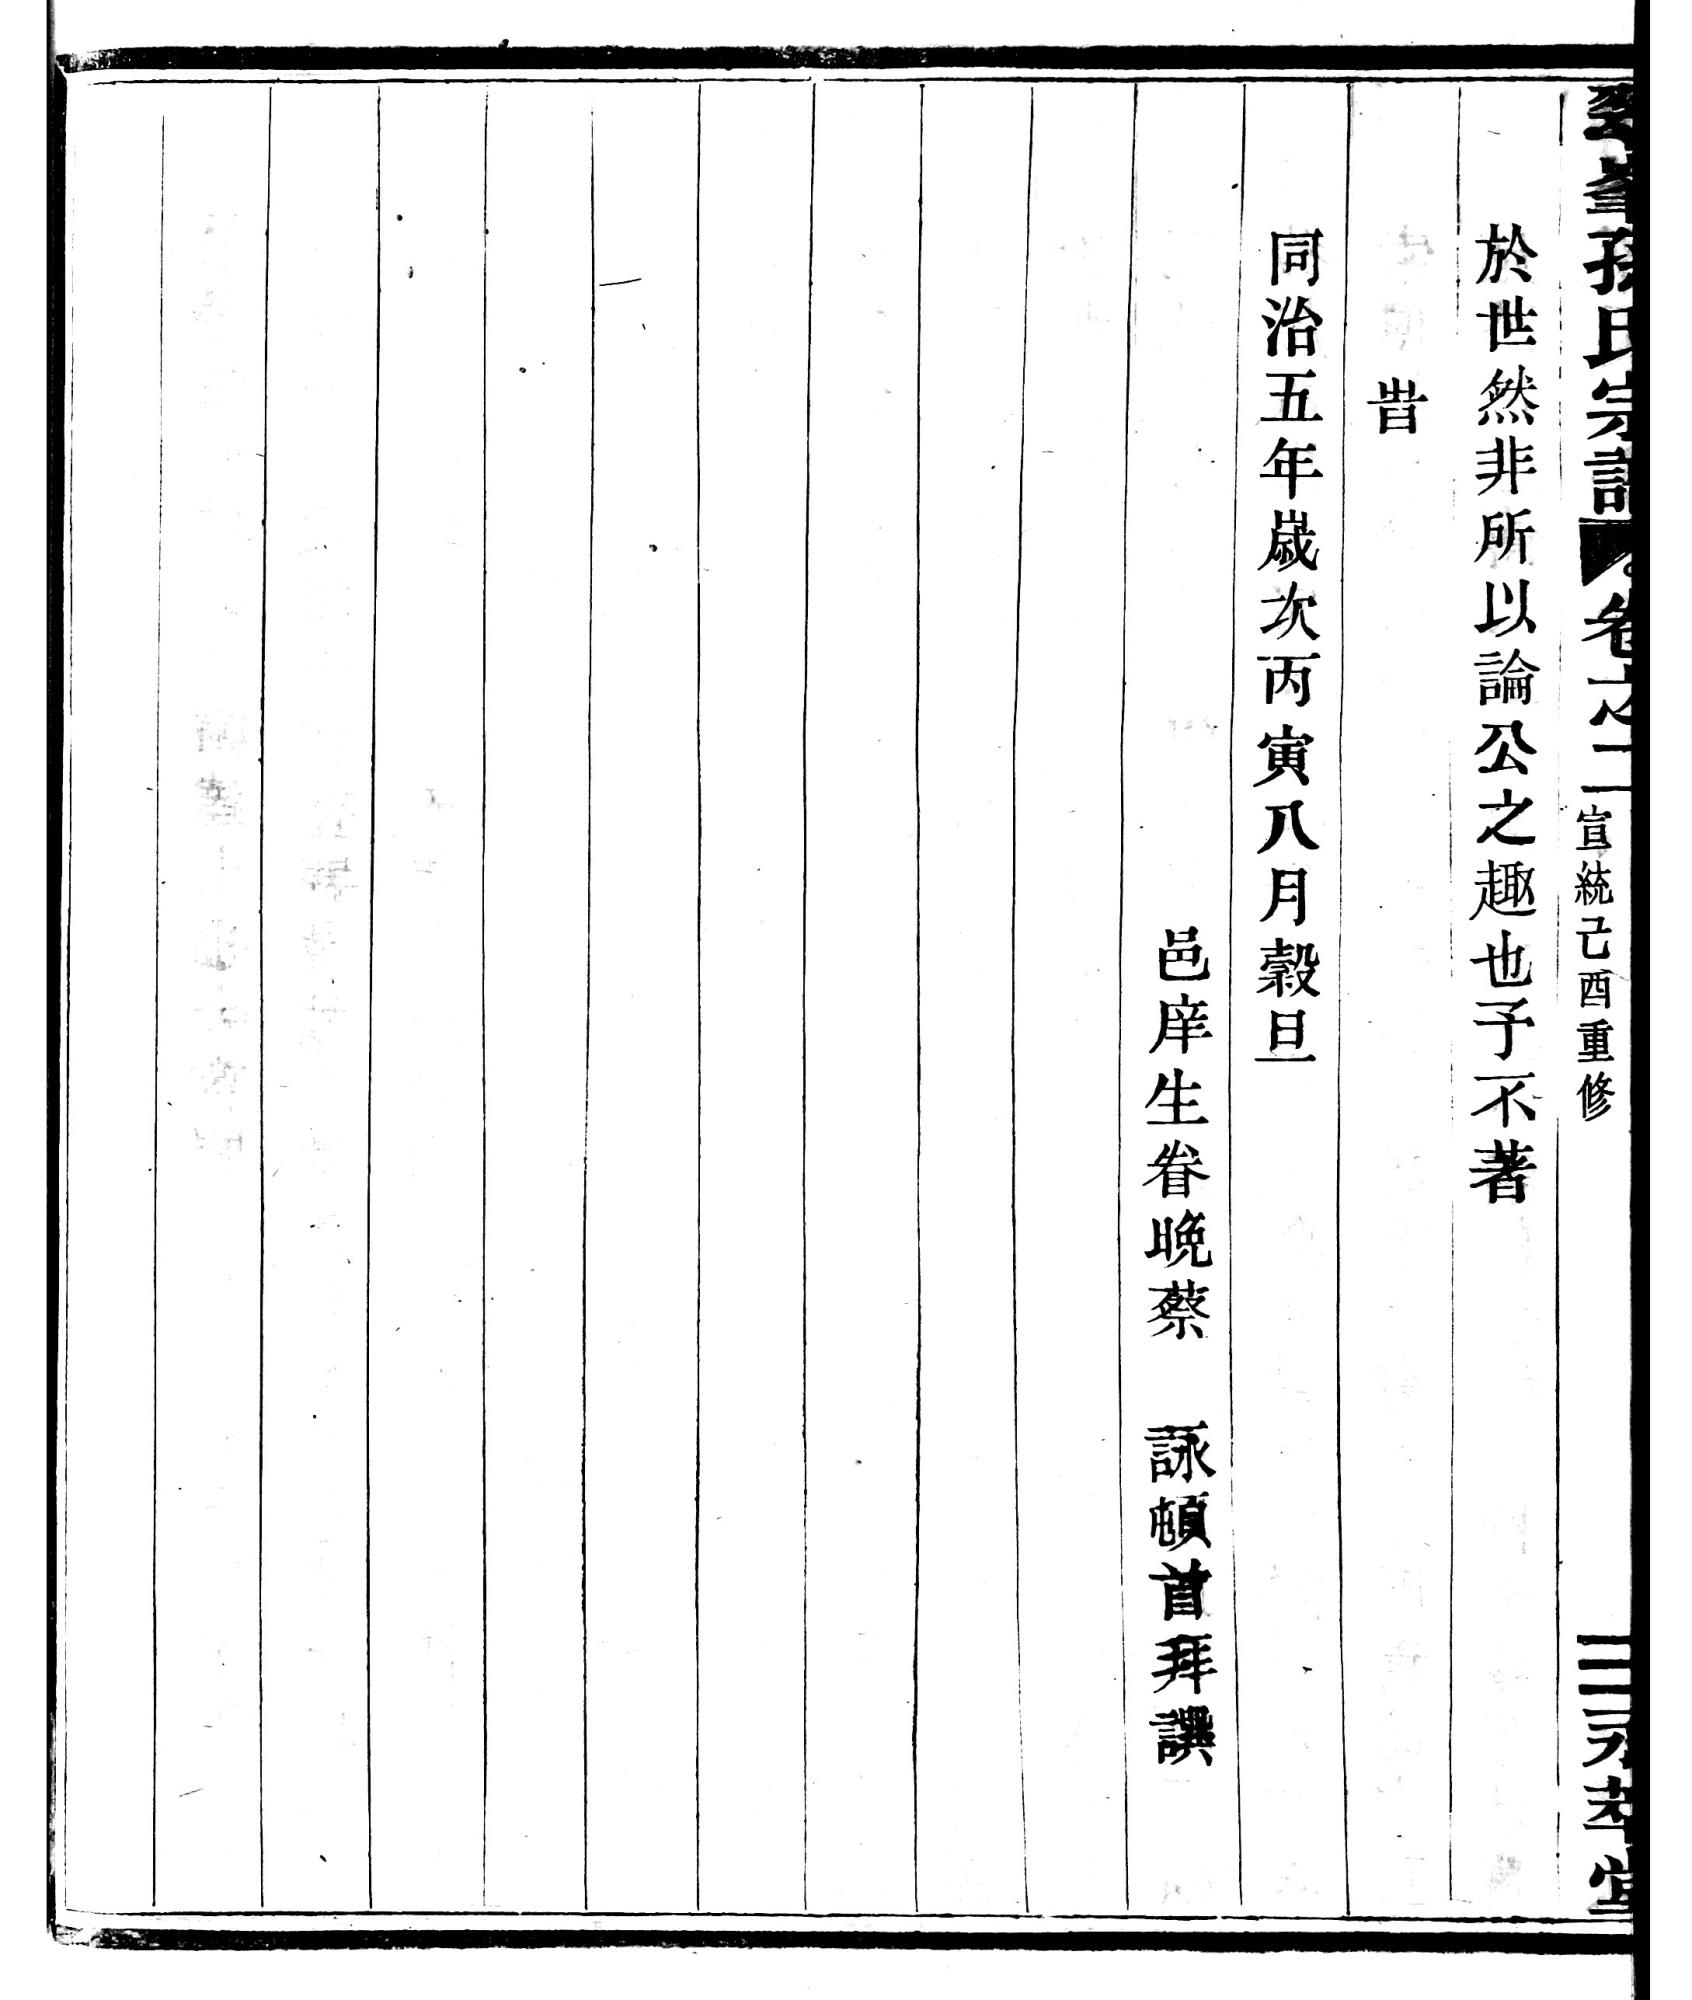 峯孫氏宗譜 卷之二 宣統己酉重修 三 永堂
於世然非所以論公之趣也予不著
旹
同治五年歲次丙寅八月穀旦
邑庠生眷晚蔡 詠頓首拜譔